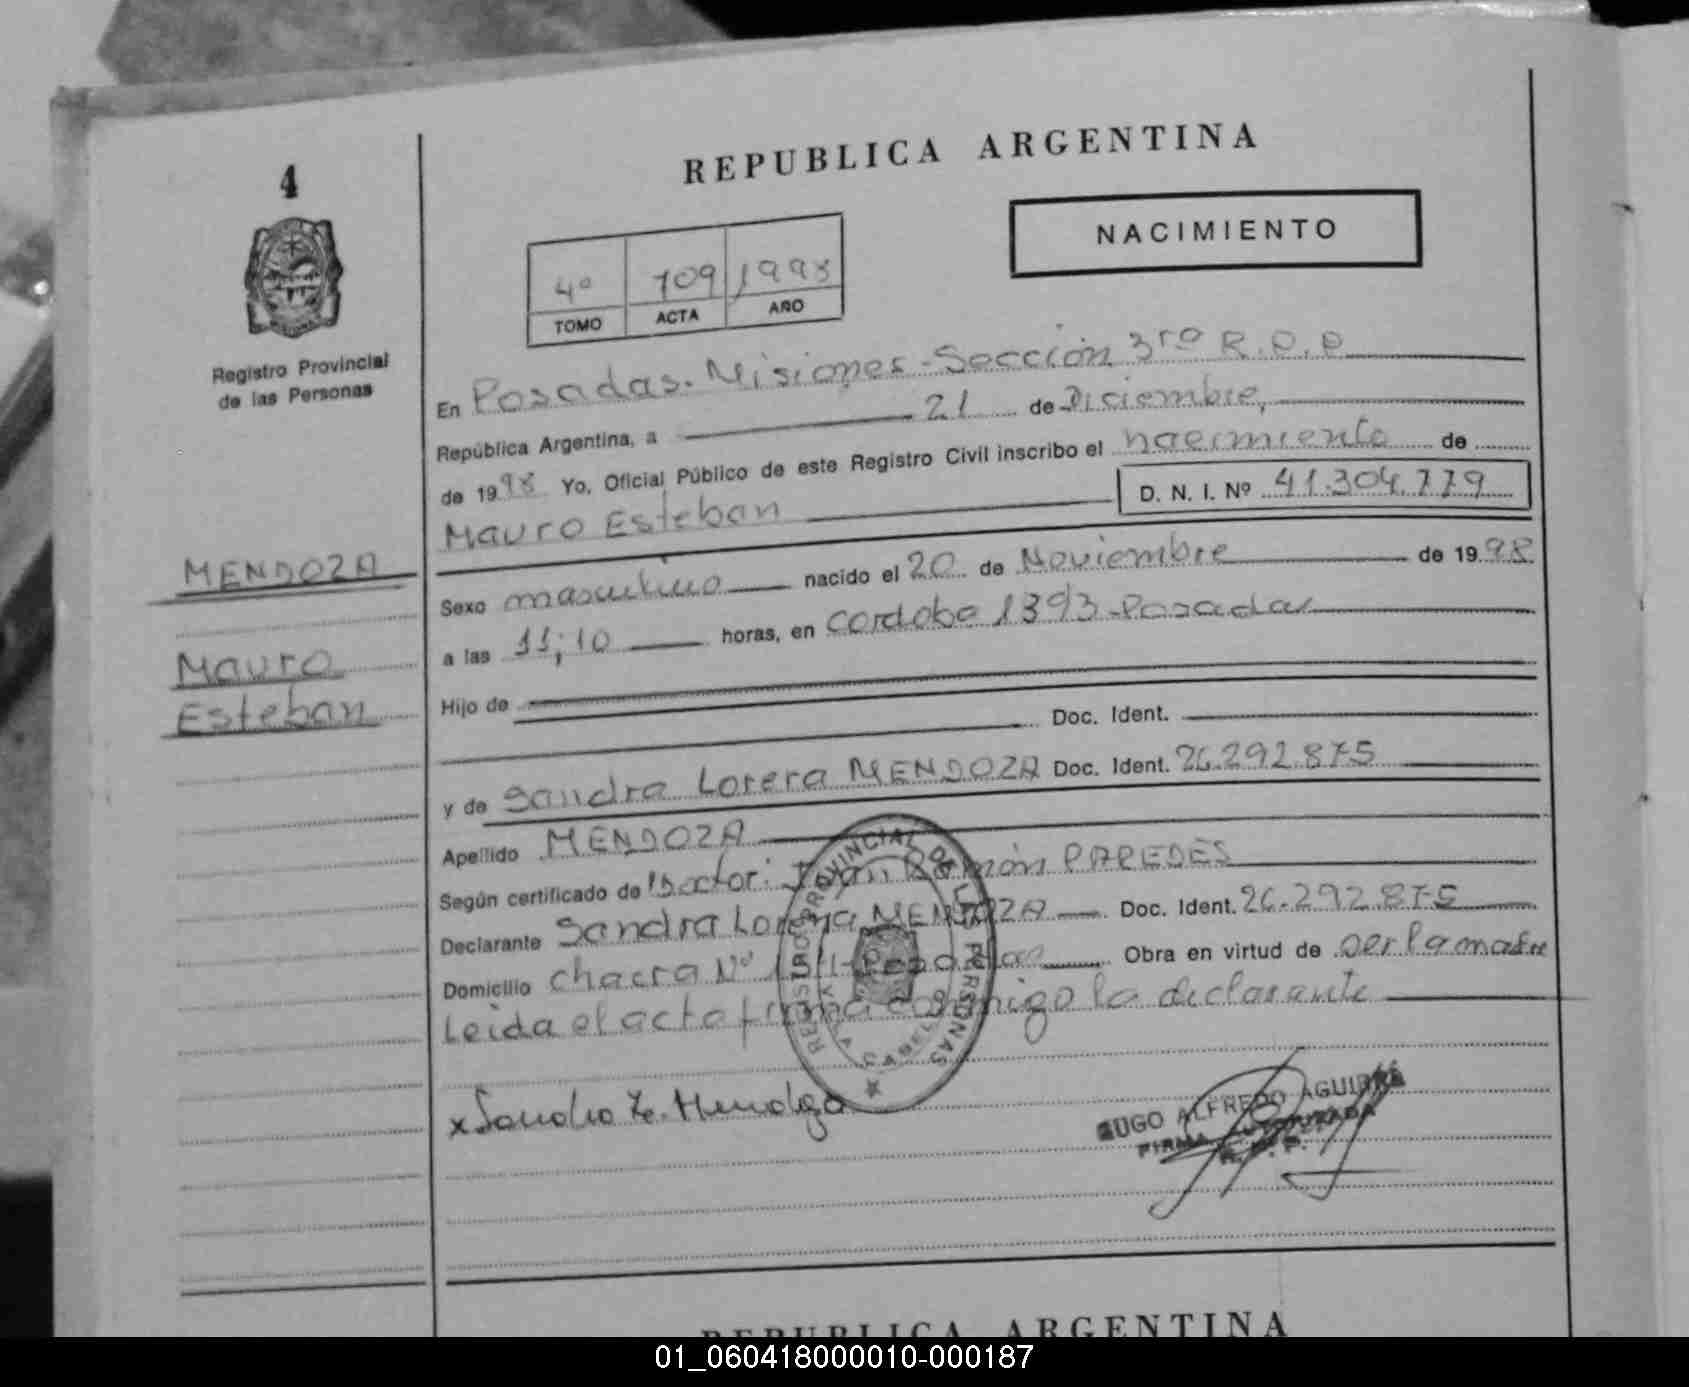 4
Registro Provincial
de las Personas
MENDOZA
Mauro
Esteban
REPUBLICA ARGENTINA
NACIMIENTO
4º 709 1998
TOMO ACTA AÑO
En Posadas. Misiones - Sección 3ra R.P.P
República Argentina, a 21 de Diciembre,
de 1998 Yo, Oficial Público de este Registro Civil inscribo el nacimiento de
Mauro Esteban D. N. I. Nº 41.304.779
Sexo masculino nacido el 20 de Noviembre de 1998
a las 11;10 horas, en Cordoba 1393 - Posadas
Hijo de
Doc. Ident.
y de Sandra Lorena MENDOZA Doc. Ident. 26.292.875
Apellido MENDOZA
Según certificado de Doctor: Juan Ramón PAREDES
Declarante Sandra Lorena MENDOZA Doc. Ident. 26.292.875
Domicilio Chacra Nº Posadas Obra en virtud de ser la madre
Leida el acta firma conmigo la declarante
REGISTRO PROVINCIAL DE LAS PERSONAS
x Sandra L. Mendoza
HUGO ALFREDO AGUIRRE
FIRMA AUTORIZADA
R. P. P.
REPUBLICA ARGENTINA
01_060418000010-000187